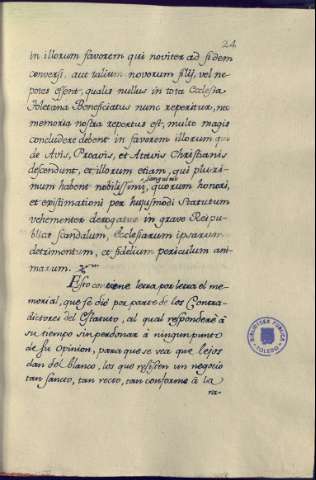 24
in illorum favorem qui noviter ad fidem
conversi, aut talium novorum filij, vel ne-
potes essent, qualis nullus in tota Ecclesia
Toletana Beneficiatus nunc reperitur, nec
memoria nostra repertus est, multo magis
concludere debent in favorem illorum qui
de Avis, Proavis, et Atavis Christianis
descendunt, et illorum etiam, qui pluri-
sanguinis
mum habent nobilissimi, quorum honori,
et existimationi per hujusmodi Statutum
vehementer derogatur in grave Reipu-
blicæ scandalum, Ecclesiarum ipsarum
detrimentum, et fidelium periculum ani-
marum.
Esto contiene letra por letra el me-
morial, que se dió por parte de los Contra-
dictores del Estatuto, al qual responderé à
su tiempo sin perdonar à ningun punto
de su opinion, para que se vea que lejos
dan del blanco, los que resisten un negocio
tan sancto, tan recto, tan conforme à la
ra-
BIBLIOTECA PUBLICA
TOLEDO